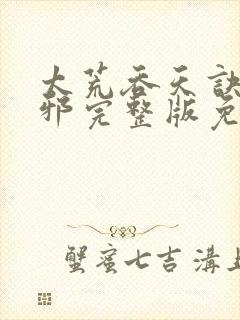 大荒吞天訣
邪完整版免
蟹蜜七吉溝上